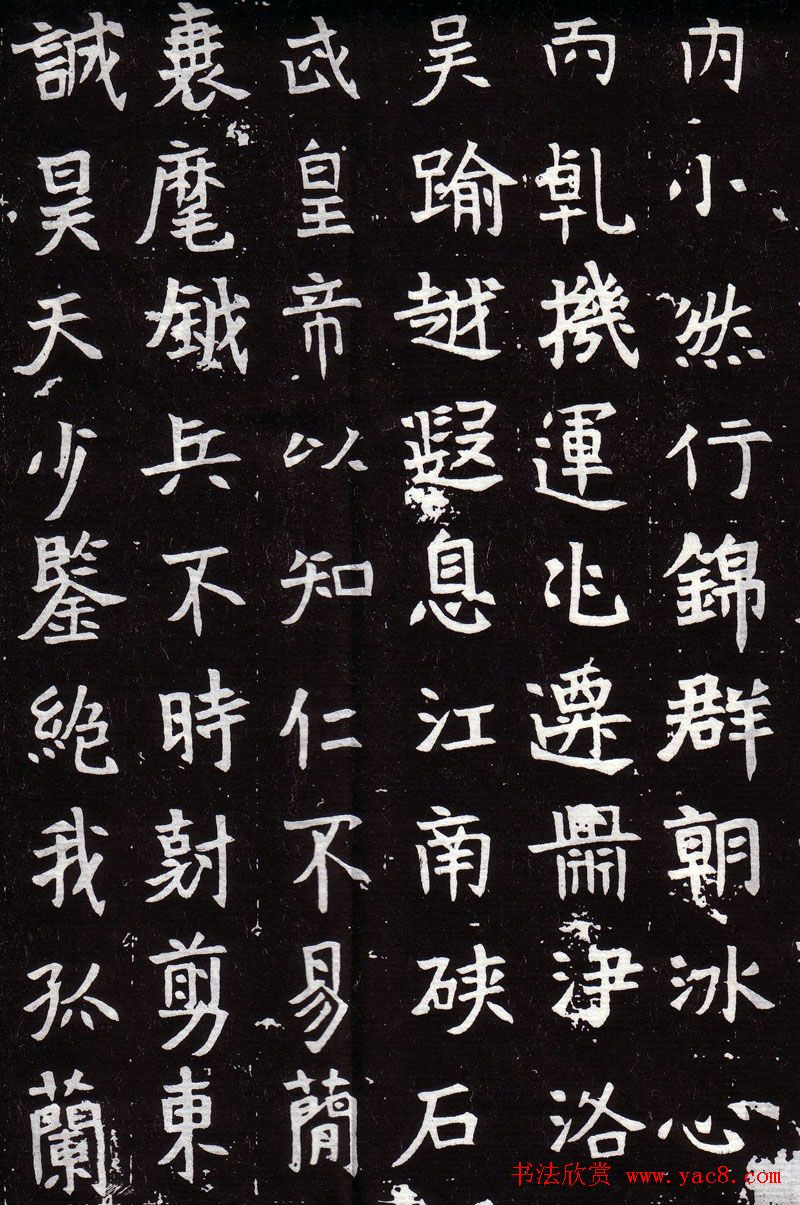 内小然行錦群朝冰心
丙乹機運兆遷鼎津洛
吴踰越遐息江南硤石
武皇帝以知仁不易簡
衷麾鉞兵不時討剪東
誠昊天少鑒絶我孤蘭
书法欣赏 www.yac8.com